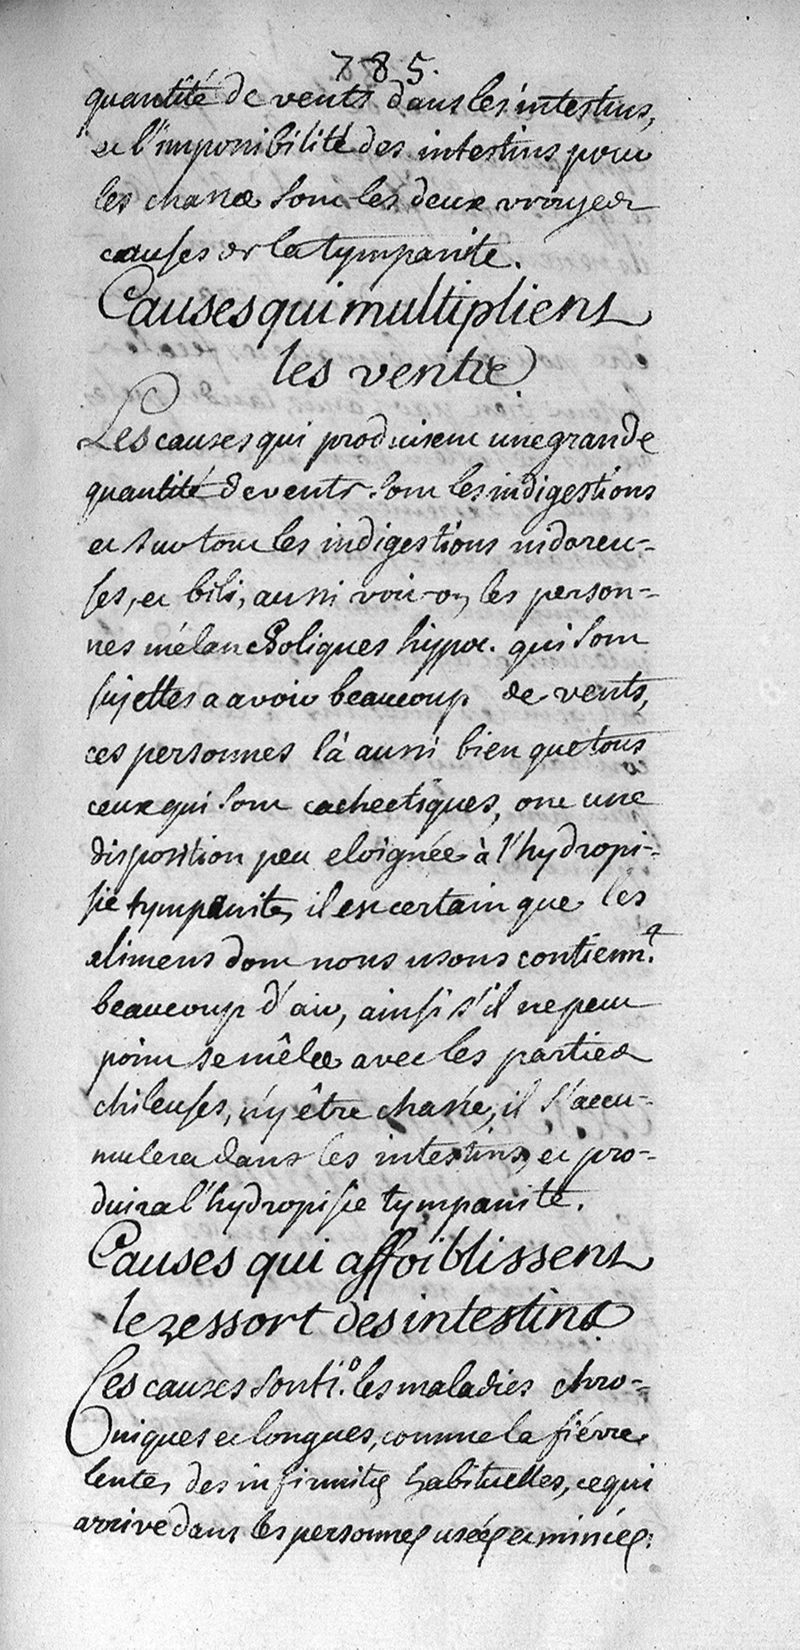 785.
quantité de vents dans les intestins,
et l'impossibilité des intestins pour
les chasser sont les deux vrayes
causes de la tympanite.
Causes qui multiplient
les vents
Les causes qui produisent une grande
quantité de vents sont les indigestions
et surtout les indigestions nidoreu-
ses, et bili, aussi voit-on les person-
nes mélancholiques hypoc. qui sont
sujettes a avoir beaucoup de vents,
ces personnes là aussi bien que tous
ceux qui sont cachectiques, ont une
disposition peu eloignée à l'hydropi-
sie tympanite, il est certain que les
alimens dont nous usons contienn.t
beaucoup d'air, ainsi s'il ne peut
point se mêler avec les parties
chileuses, n'y être chassé, il s'accu-
mulera dans les intestins, et pro-
duira l'hydropisie tympanite.
Causes qui affoiblissent
le ressort des intestins
Ces causes sont 1.º les maladies chro-
niques et longues, comme la fiévre
lente, des infirmités habituelles, ce qui
arrive dans les personnes usées et minées.